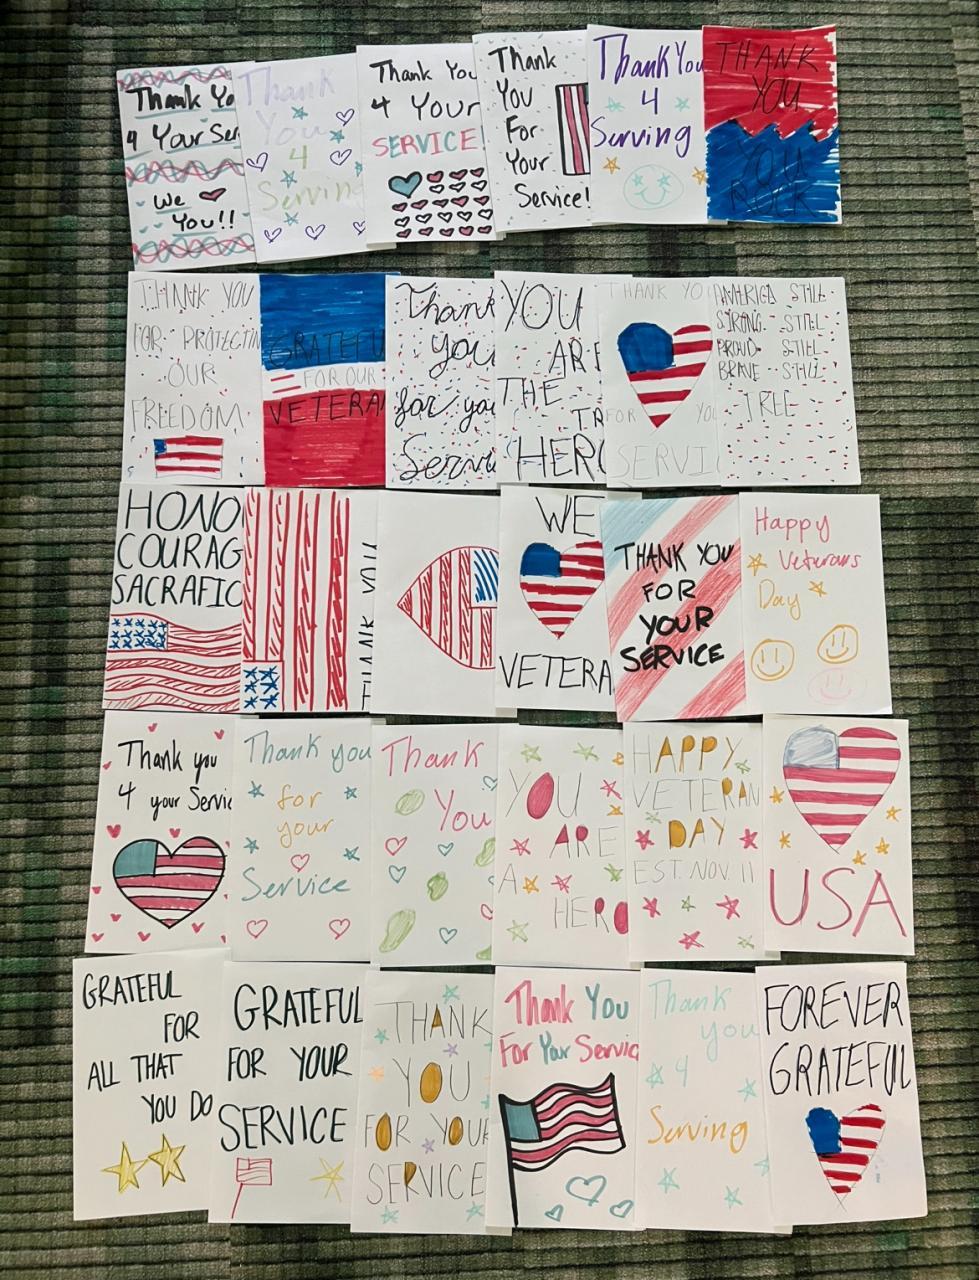 Thank Yo
4 Your Ser
We
You!!
Thank
You
4
Serving
Thank You
4 Your
SERVICE!
Thank
You
For
Your
Service!
Thank You
4
Serving
THANK
YOU
YOU
ROCK
THANK YOU
FOR PROTECTIN
OUR
FREEDOM
GRATEFU
FOR OUR
VETERA
Thank
you
for you
Servi
YOU
ARE
THE
TR
HERO
THANK YO
FOR YOU
SERVI
AMERICA STILL
STRONG STILL
PROUD STILL
BRAVE STILL
FREE
HONO
COURAG
SACRAFIC
THANK YOU
WE
VETERA
THANK YOU
FOR
YOUR
SERVICE
Happy
Veterans
Day
Thank you
4 your Servic
Thank you
for
your
Service
Thank
You
YOU
ARE
A
HERO
HAPPY
VETERAN
DAY
EST. NOV. 11
USA
GRATEFUL
FOR
ALL THAT
YOU DO
GRATEFUL
FOR YOUR
SERVICE
THANK
YOU
FOR YOUR
SERVICE
Thank You
For Your Servic
Thank
you
4
Serving
FOREVER
GRATEFUL